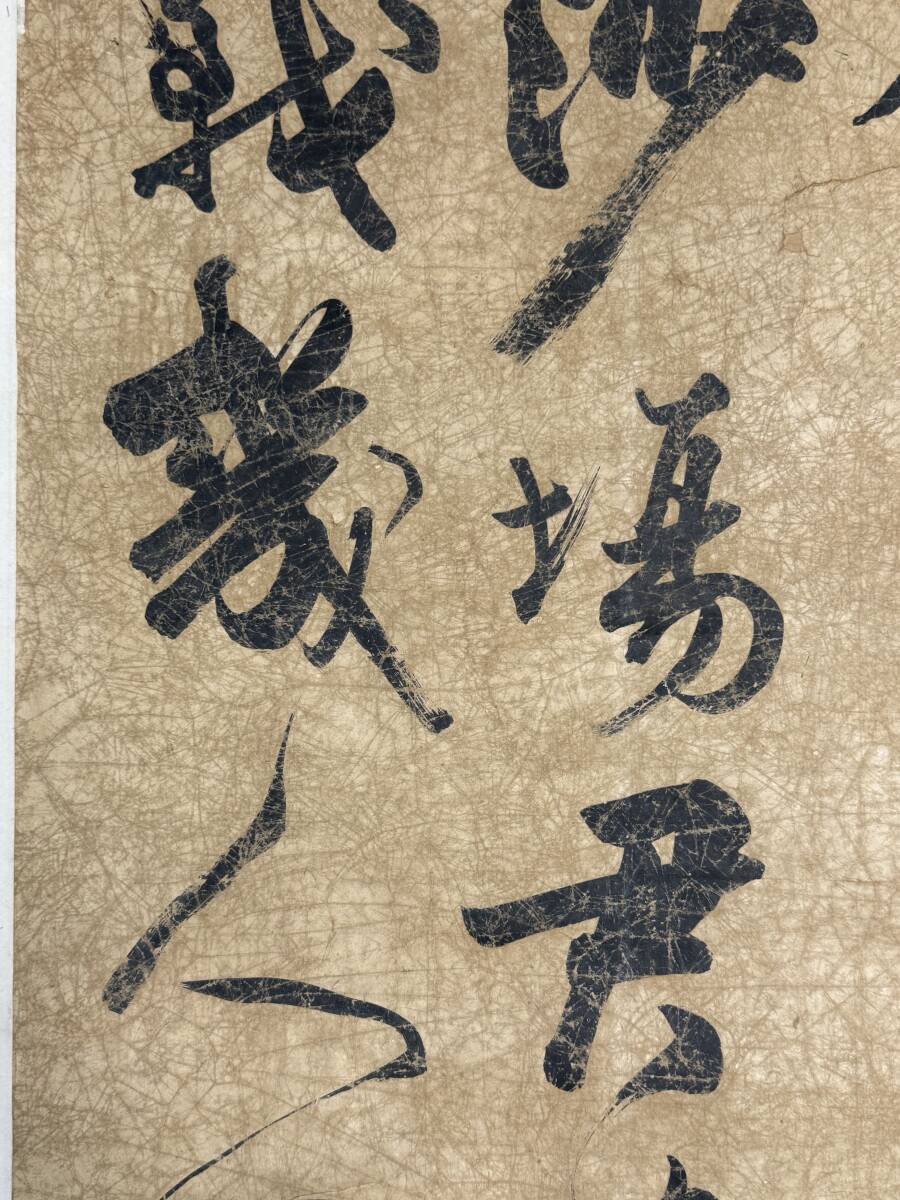 沙場君
戰幾人